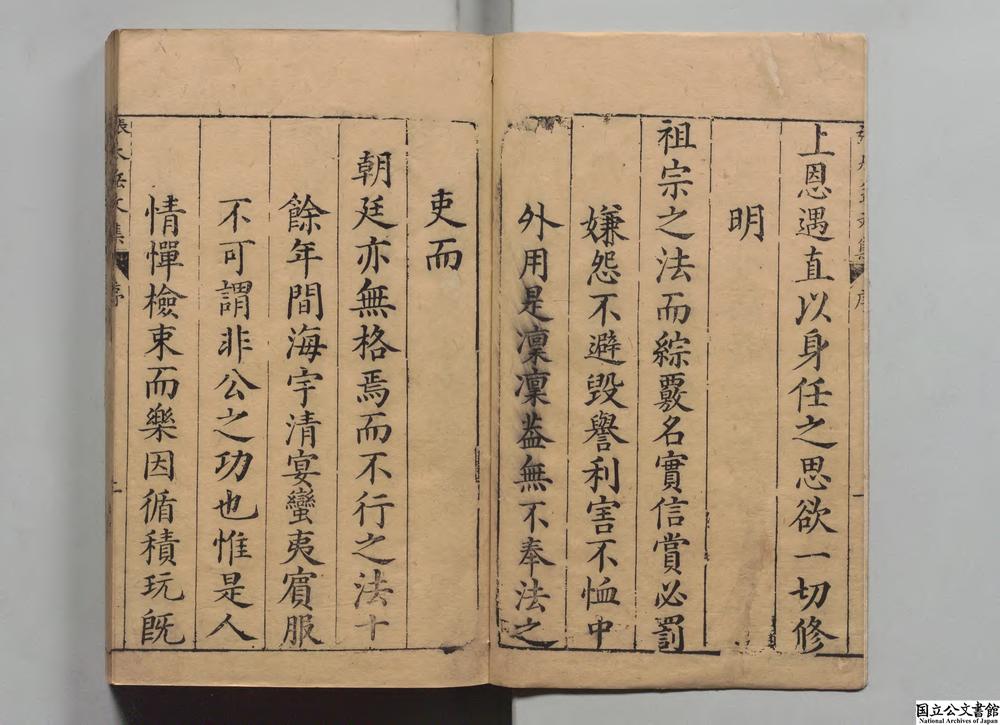 上恩遇直以身任之思欲一切修
明
祖宗之法而綜覈名實信賞必罰
嫌怨不避毀譽利害不恤中
外用是凛凛葢無不奉法之
吏而
朝廷亦無格焉而不行之法十
餘年間海宇清宴蠻夷賓服
不可謂非公之功也惟是人
情憚檢束而樂因循積玩旣
張太岳文集
序
二
国立公文書館
National Archives of Japan